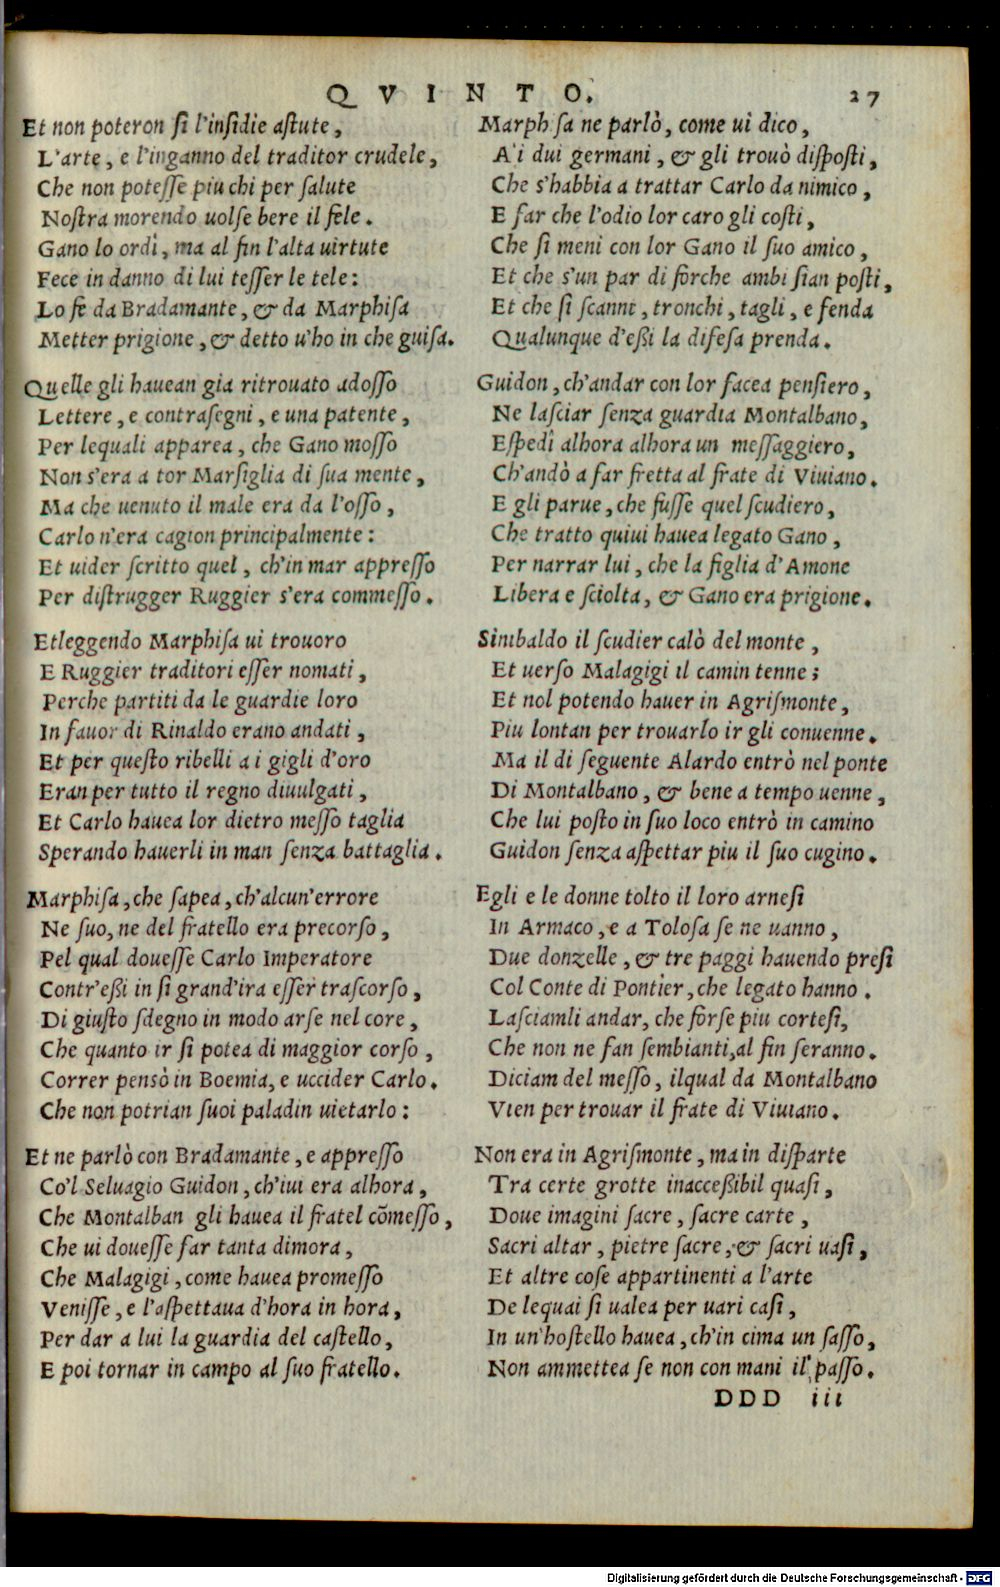 QVINTO. 27
Et non poteron ſi l'inſidie aſtute,
L'arte, e l'inganno del traditor crudele,
Che non poteſſe piu chi per ſalute
Noſtra morendo uolſe bere il fele.
Gano lo ordì, ma al fin l'alta uirtute
Fece in danno di lui teſſer le tele:
Lo fe da Bradamante, & da Marphiſa
Metter prigione, & detto u'ho in che guiſa.
Quelle gli hauean gia ritrouato adoſſo
Lettere, e contraſegni, e una patente,
Per lequali apparea, che Gano moſſo
Non s'era a tor Marſiglia di ſua mente,
Ma che uenuto il male era da l'oſſo,
Carlo n'era cagion principalmente:
Et uider ſcritto quel, ch'in mar appreſſo
Per diſtrugger Ruggier s'era commeſſo.
Et leggendo Marphiſa ui trouoro
E Ruggier traditori eſſer nomati,
Perche partiti da le guardie loro
In fauor di Rinaldo erano andati,
Et per queſto ribelli a i gigli d'oro
Eran per tutto il regno diuulgati,
Et Carlo hauea lor dietro meſſo taglia
Sperando hauerli in man ſenza battaglia.
Marphiſa, che ſapea, ch'alcun'errore
Ne ſuo, ne del fratello era precorſo,
Pel qual doueſſe Carlo Imperatore
Contr'eßi in ſi grand'ira eſſer traſcorſo,
Di giuſto ſdegno in modo arſe nel core,
Che quanto ir ſi potea di maggior corſo,
Correr pensò in Boemia, e uccider Carlo.
Che non potrian ſuoi paladin uietarlo:
Et ne parlò con Bradamante, e appreſſo
Co'l Seluagio Guidon, ch'iui era alhora,
Che Montalban gli hauea il fratel cõmeſſo,
Che ui doueſſe far tanta dimora,
Che Malagigi, come hauea promeſſo
Veniſſe, e l'aſpettaua d'hora in hora,
Per dar a lui la guardia del caſtello,
E poi tornar in campo al ſuo fratello.
Marph ſa ne parlò, come ui dico,
A' i dui germani, & gli trouò diſpoſti,
Che s'habbia a trattar Carlo da nimico,
E far che l'odio lor caro gli coſti,
Che ſi meni con lor Gano il ſuo amico,
Et che s'un par di forche ambi ſian poſti,
Et che ſi ſcanni, tronchi, tagli, e fenda
Qualunque d'eßi la difeſa prenda.
Guidon, ch'andar con lor facea penſiero,
Ne laſciar ſenza guardia Montalbano,
Eſpedì alhora alhora un meſſaggiero,
Ch'andò a far fretta al frate di Viuiano.
E gli parue, che fuſſe quel ſcudiero,
Che tratto quiui hauea legato Gano,
Per narrar lui, che la figlia d'Amone
Libera e ſciolta, & Gano era prigione.
Sinibaldo il ſcudier calò del monte,
Et uerſo Malagigi il camin tenne;
Et nol potendo hauer in Agriſmonte,
Piu lontan per trouarlo ir gli conuenne.
Ma il di ſeguente Alardo entrò nel ponte
Di Montalbano, & bene a tempo uenne,
Che lui poſto in ſuo loco entrò in camino
Guidon ſenza aſpettar piu il ſuo cugino.
Egli e le donne tolto il loro arneſi
In Armaco, e a Toloſa ſe ne uanno,
Due donzelle, & tre paggi hauendo preſi
Col Conte di Pontier, che legato hanno.
Laſciamli andar, che forſe piu corteſi,
Che non ne fan ſembianti, al fin ſeranno.
Diciam del meſſo, ilqual da Montalbano
Vien per trouar il frate di Viuiano.
Non era in Agriſmonte, ma in diſparte
Tra certe grotte inacceßibil quaſi,
Doue imagini ſacre, ſacre carte,
Sacri altar, pietre ſacre, & ſacri uaſi,
Et altre coſe appartinenti a l'arte
De lequai ſi ualea per uari caſi,
In un'hoſtello hauea, ch'in cima un ſaſſo,
Non ammettea ſe non con mani il paſſo.
DDD iii
Digitalisierung gefördert durch die Deutsche Forschungsgemeinschaft - DFG